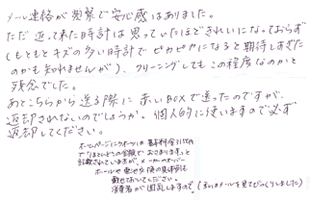 メール連絡が頻繁で安心感はありました。
ただ返って来た時計は思っていたほどきれいになっておらず
(もともとキズの多い時計でピカピカになると期待しすぎた
のかも知れませんが)、クリーニングしてもこの程度なのかと
残念でした。
あとこちらから送る際に赤いBOXで送ったのですが、
返却されないのでしょうか。個人的に使いますので必ず
返却してください。
ホームページに 基本料金
で"ほとんどこの金額でおさまります"と
記載されていますが、メーカーのオーバー
ホールや
載せておいてください。
消費者が困乱しますので。(メールを見てびっくりしました)